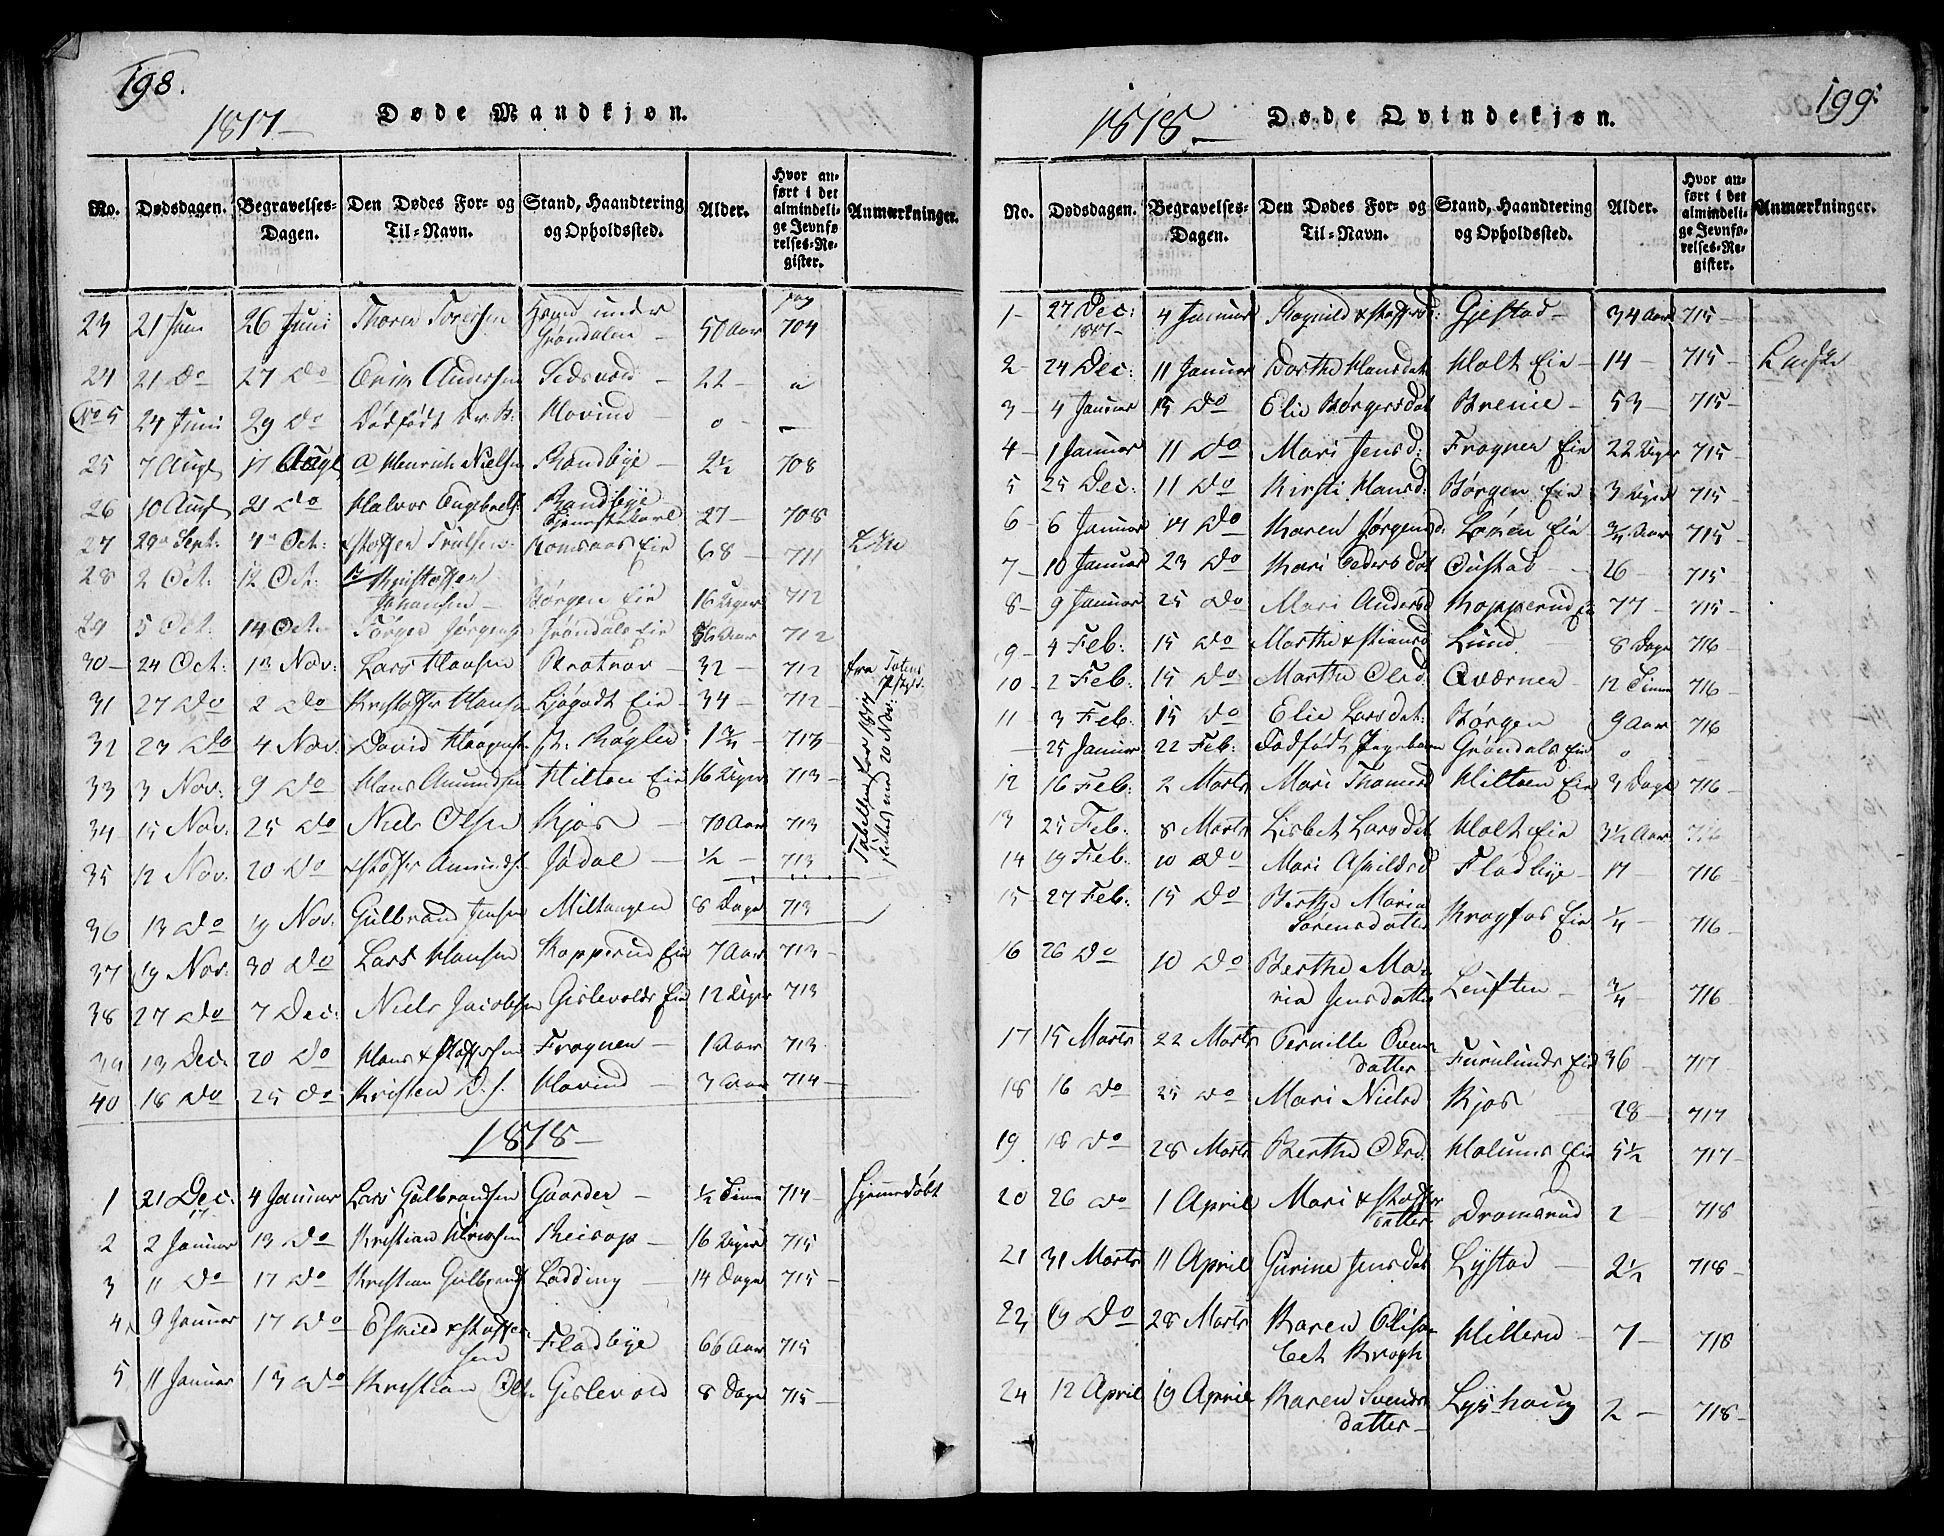 198.
1817
Døde Mandkjøn.
No. Dødsdagen. Begravelses-Dagen. Den Dødes For- og Til-Navn. Stand, Haandtering og Opholdssted. Alder. Hvor anført i det almindelige Jevnførelses-Register. Anmærkninger.
23 21 Juni 26 Juni Thorer Toresen under Grøndalen 50 Aar pag 704
24 21 Do 27 Do Andersen 22 -
No 5 24 Juni 29 Do Dødfødt Hovind - 0 -
25 7 Augt 17 Augt Henrich Nielsen Randbye - 2½ 708
26 10 Augt 21 Do Halvor Engebretss Randbye Tjenstekarl 27 - 708
27 29 Sept. 4 Oct: xstoffer Trulsen Romsaas Eie 68 - 711
28 2 Oct: 12 Oct: Christoffer Johansen - Børgen Eie 16 Uger 712
29 5 Oct. 14 Oct. Jørgen Jørgens Grøndals Eie 712
30 - 24 Oct: Nov: Lars Hansen 32 - 712 fra Totens Præstegd.
31 27 Do 2 Do Kristoffer Hansen Ljøgodt Eie - 34 - 712 -
32 23 Do 4 Nov. David 1¾ - 713
33 3 Nov: 9 Do Hans Amundsen Hilton Eie 16 Uger 713 -
34 15 Nov: 25 Do Niels Olsen Kjos - 70 Aar 713
35 12 Nov: 20 Do xstoffer Amunds. Jødal - ½ - 713
Tabellen for 1817 sluttes med 20 Nov:
36 13 Do 19 Nov. Gulbrand Jensen Miltangen 8 Dage 713
37 19 Nov: 30 Do Lars Hansen Kopperud Eie 7 Aar 713 -
38 27 Do 7 Dec: Niels Jacobsen Gislevolds Eie 12 Uger 713
39 13 Dec: 20 Do Hans xstoffersen Frogner - 1 Aar 713
40 18 Do 25 Do Kristen Hovind - 3 Aar 714 -
1818 -
1 21 Dec: 17 4 Januar Lars Gulbrandsen Gaarder - ½ Time 714 - Hjemmedøbt
2 2 Januar 13 Do Kristian Reisop - 16 Uger 715
3 11 Do 17 Do Kristian Gulbrands Lødding - 14 Dage 715 -
4 9 Januar 17 Do Eskild xstoffersen Fladbye 66 Aar 715
5 11 Januar 13 Do Kristian Ols. Gislevold 8 Dage 715 -
199.
1818 -
Døde Qvindekjøn.
No. Dødsdagen. Begravelses-Dagen. Den Dødes For- og Til-Navn. Stand, Haandtering og Opholdssted. Alder. Hvor anført i det almindelige Jevnførelses-Register. Anmærkninger.
1 - 27 Dec: 1817 - 4 Januar Ragnild xstoffersd: Gjestad - 34 Aar 715 -
2 - 24 Dec: 11 Januar Dorthe Hansdat. Holt Eie - 14 - 715 -
3 - 4 Januar 15 Do Elie Børgersdat Brenie - 53 - 715 -
4 - 1 Januar 11 Do Mari Jensd: Frogner Eie 22 Uger 715 -
5 25 Dec: 11 Do Kirsti Hansd: Børgen Eie 3 Uger 715
6 - 6 Januar 17 Do Karen Jørgensd: Løken Eie ¾ Aar 715
7 - 10 Januar 23 Do Kari Pedersdat - 26 - 715
8 - 9 Januar 25 Do Mari Andersd Kopperud Eie 77 - 715 -
9 - 4 Feb: 15 Do Marthe xstiansd Lund 8 Dage 716 -
10 - 2 Feb: 15 Do Marthe Olsd: Qværnen - 12 Timer 716 -
11 3 Feb: 15 Do Elie Larsdat: Børgen 9 Aar 716
- 25 Januar 22 Feb: Dødfødt Pigebarn Grøndals Eie 0
12 16 Feb: 2 Marts Mari Thomesd Hiltoen Eie 3 Dage 716 -
13 25 Feb: 8 Marts Lisbet Larsdat Holt Eie 3½ Aar 716
14 19 Feb: 10 Do Mari Askildsd Fladbye - 17 - 716
15 27 Feb: 15 Do Berthe Maria Sørensdatter Kragfos Eie ¼ 716 -
16 26 Do 10 Do Berthe Maria Jensdatter - ¾ - 716
17 15 Marts 22 Marts Pernille Evensdatter - Furulunds Eie 36 - 717
18 16 Do 25 Do Mari Nielsd Kjos 28 - 717
19 18 Do 28 Marts Berthe Olsd. Holums Eie 5½ 717 -
20 26 Do 1 April Mari xstoffersdatter Dromsrud 2 - 718
21 31 Marts 11 April Gurine Jensdat Lystad - 2½ 718 -
22 19 Do 28 Marts Karen Elisabet Krogh Hillerud - 7 - 718
24 12 April 19 April Karen Svendsdatter - Lyshoug 2 - 718 -